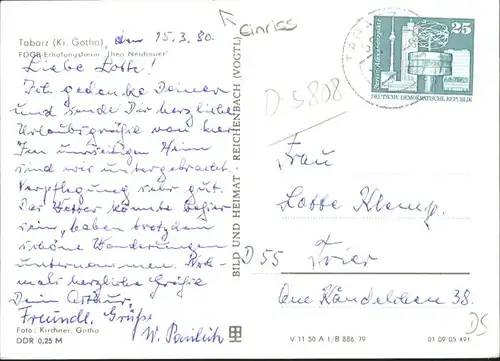 Tabarz (Kr. Gotha), den 15.3.80.
FDGB-Erholungsheim "Theo Neubauer"
Liebe Lotte!
Ich gedenke Deiner
und sende Dir herzliche
Urlaubsgrüße von hier
Im Heim
sind wir untergebracht
Verpflegung sehr gut.
Das Wetter könnte besser
sein, haben trotzdem
schöne Wanderungen
unternommen. Noch-
mals herzliche Grüße
Dein Arthur.
Freundl. Grüße
W.
Foto: Kirchner, Gotha
DDR 0,25 M
BILD UND HEIMAT · REICHENBACH (VOGTL)
Einriss
25
DEUTSCHE DEMOKRATISCHE REPUBLIK
D 5808
Frau
Lotte Klemp.
D 55 Trier
38.
DS
V 11 50 A 1/B 886/79 01 09 05 491